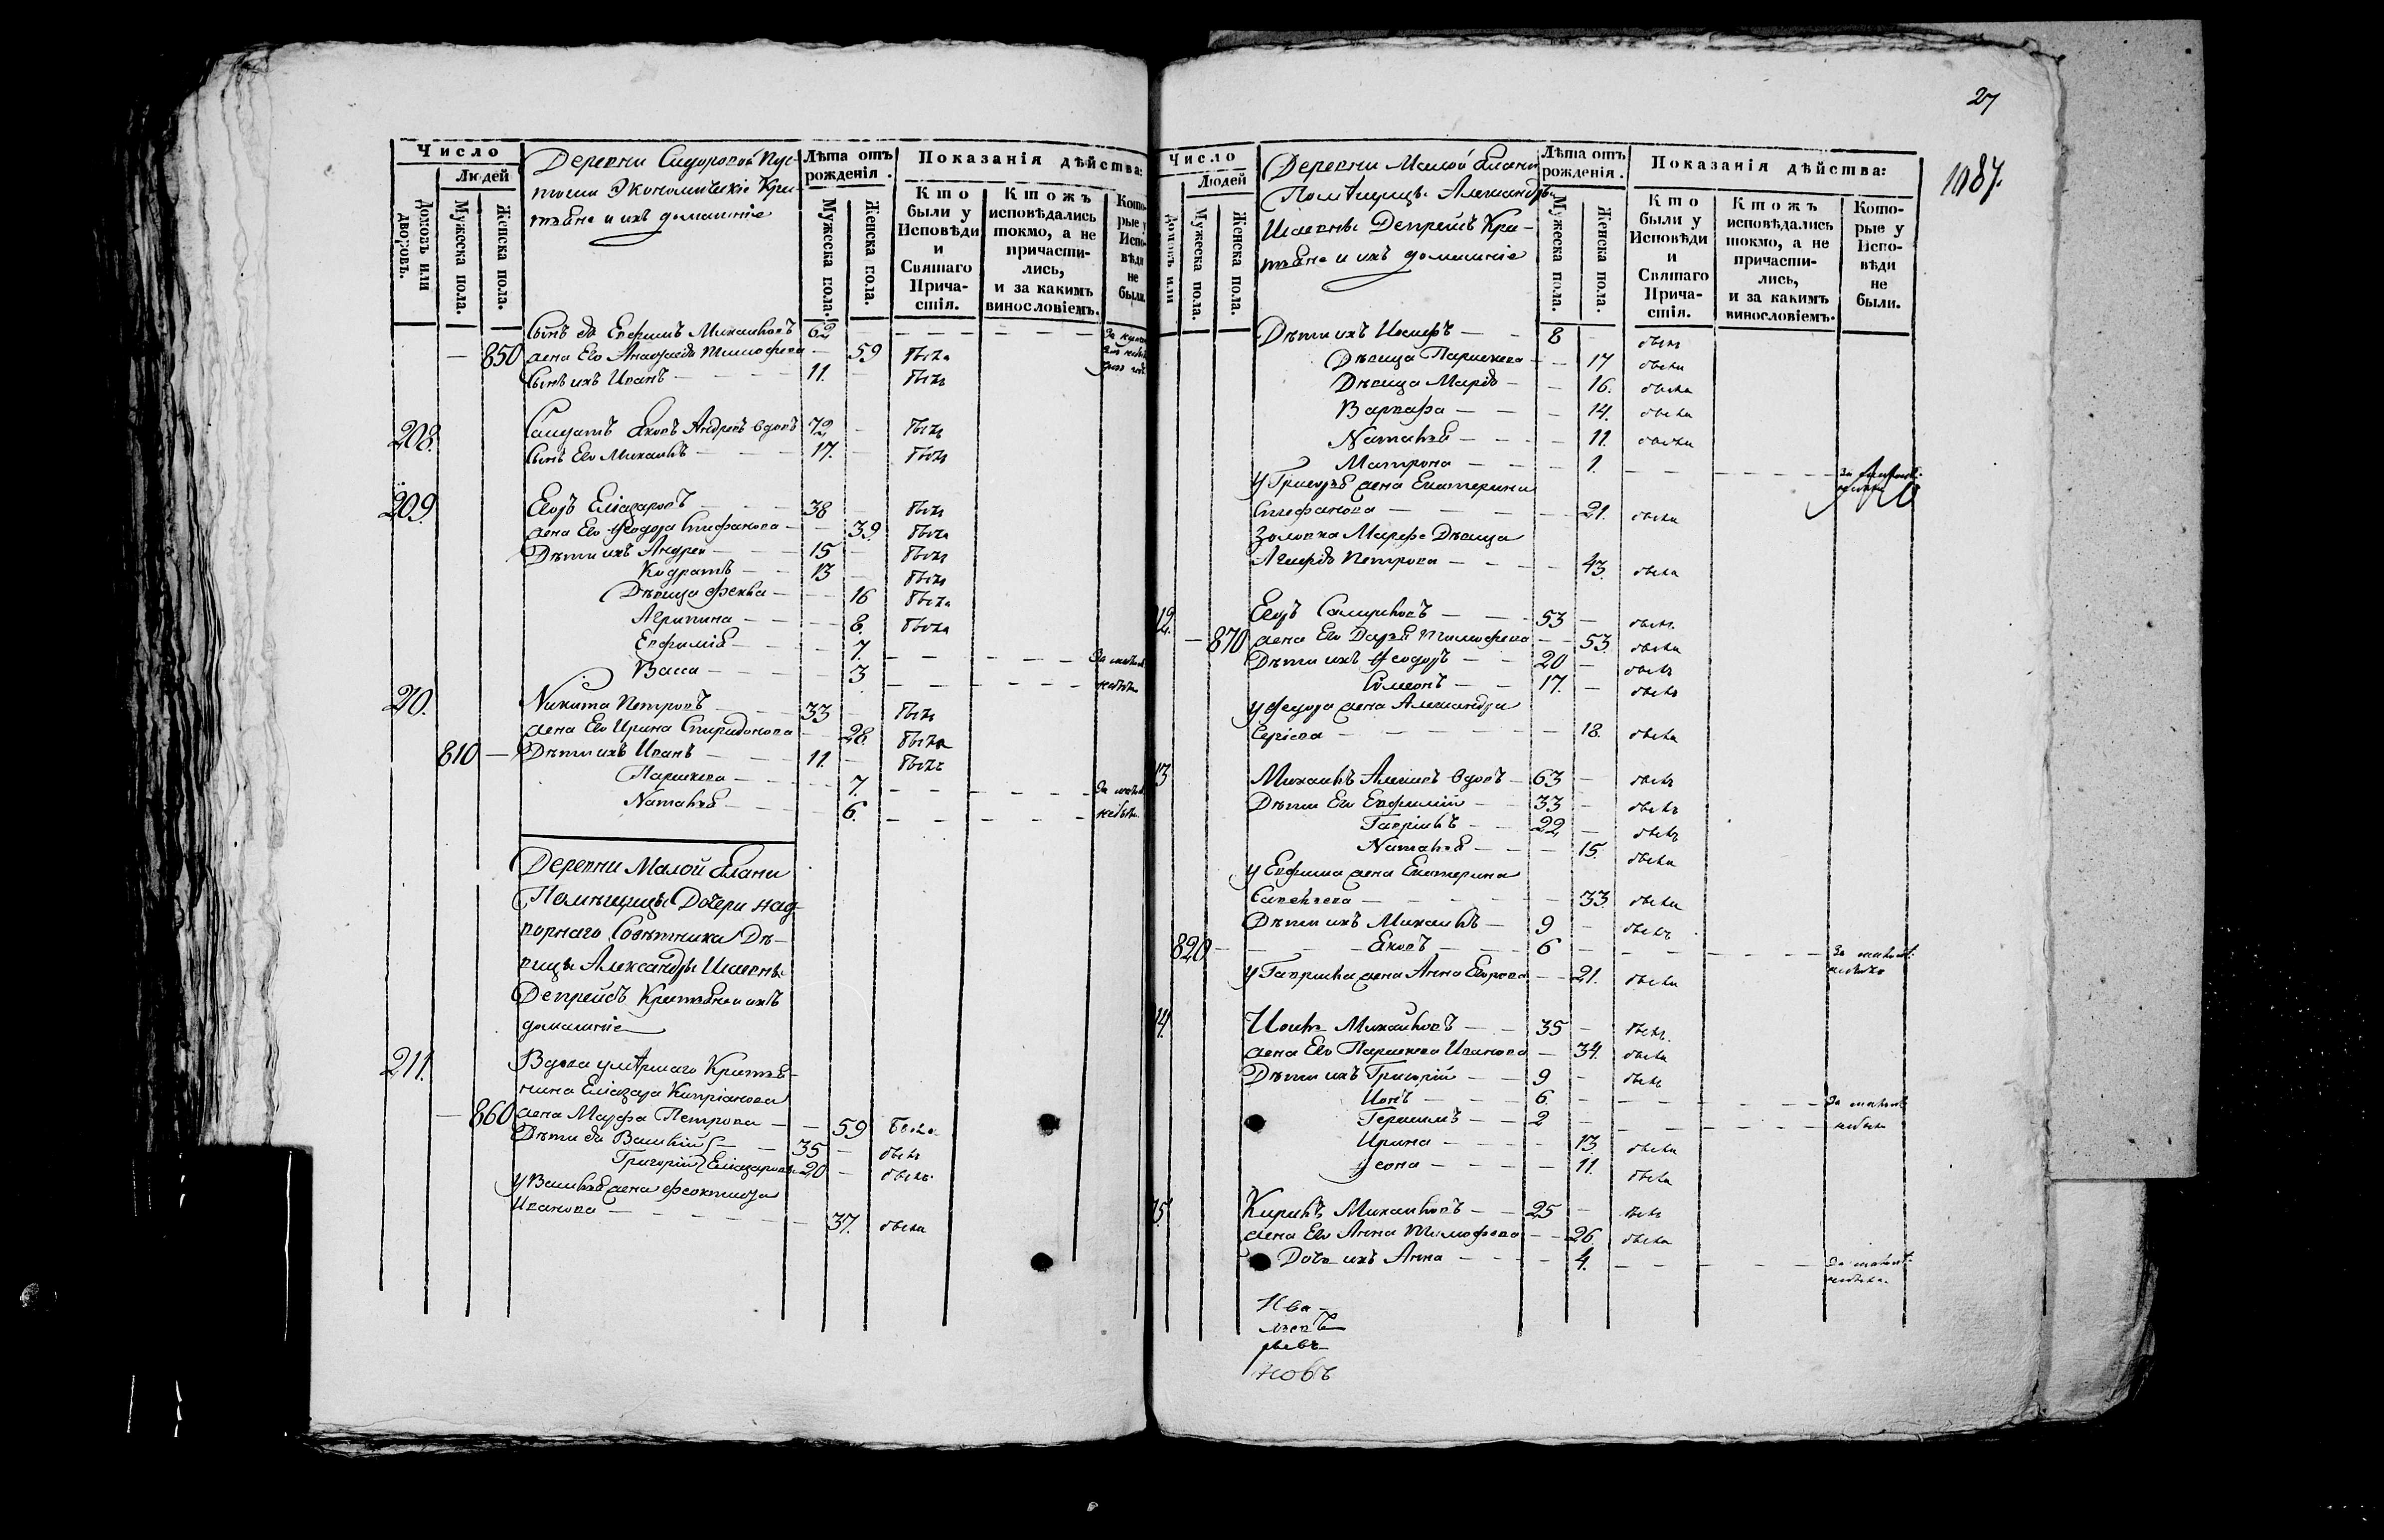 Число
Людей
Домовъ или дворовъ.
Мужеска пола.
Женска пола.
Деревни Сидоровой Пус-
тоши Экономическіе Кре-
стьяне и ихъ домашніе
Лѣта отъ рожденія.
Мужеска пола.
Женска пола.
Показанія дѣйства:
Кто были у Исповѣди и Святаго Прича-стія.
Ктожъ исповѣдались токмо, а не причасти-лись, и за какимъ винословіемъ.
Кото-рые у Испо-вѣди не были.
Сынъ ея Евфимъ Михайловъ 62 — — — — —
— 850 жена Ево Анастасія Тимофеева — 59 была
Сынъ ихъ Иванъ — — — 11. — былъ
208. Яковъ Андреевъ вдовъ 72 — былъ
Сынъ Ево Михаилъ — — — 17. — былъ
209. Егоръ Еліазаровъ — — 38 былъ
жена Ево Феодора Стефанова — — 39. была
Дѣти ихъ Андрей — — 15 — былъ
Кодратъ — — 13 — былъ
Дѣвица Фекла — — — 16 была
Агрипина — — — 8. была
Евфимія — — — 7. — — — — —
Васса — — — 3 — — — — —
210. Никита Петровъ — — 33 былъ
жена Ево Ирина Спиридонова — — 28. была
810 — Дѣти ихъ Иванъ — — 11. — былъ
Парскева — — — 7. — — — — — За малол.
Наталья — — — 6. — — — — — не были.
Деревни Малой Елани
Помѣщицы Дочери над-
ворнаго Совѣтника Дѣ-
вицы Александры Исаевны
Депрейсъ Крестьяне и ихъ
домашніе
211. Вдова умершаго Крестья-
нина Еліазара Кипріанова
— 860 жена Марфа Петрова — — 59 была
Дѣти ея Василій — — 35 — былъ
Григорій Еліазаровы 20 — былъ
у Василья жена Феоктиста
Иванова — — — — 37. была
27
1087.
Число
Людей
Домовъ или
Мужеска пола.
Женска пола.
Деревни Малой Елани
Помѣщицы Александры
Исаевны Депрейсъ Кре-
стьяне и ихъ домашніе
Лѣта отъ рожденія.
Мужеска пола.
Женска пола.
Показанія дѣйства:
Кто были у Исповѣди и Святаго Прича-стія.
Ктожъ исповѣдались токмо, а не причасти-лись, и за какимъ винословіемъ.
Кото-рые у Испо-вѣди не были.
Дѣти ихъ Іосифъ — — 8 — былъ
Дѣвица Парскева — — 17 была
Дѣвица Марія — — 16. была
Варвара — — — 14. была
Наталья — — — 11. была
Матрона — — — 1. — — — — —
у Григорья жена Екатерина
Стефанова — — — — 21. была
Золовка Марфе Дѣвица
Петрова — — — 43. была
12. Егоръ — — 53 — былъ.
— 870 жена Ево Дарья Тимофеева — — 53. была
Дѣти ихъ Феодоръ — — 20 — былъ
Симеонъ — — 17. — былъ
у Федора жена Александра
Сергіева — — — — — 18. была
13 Михаилъ Алексіевъ вдовъ — 63 — былъ
Дѣти Ево Евфимій — — 33 — былъ
Гавріилъ — — 22 — былъ
Наталья — — — 15. была
у Евфима жена Екатерина
Савельева — — — — 33. была
Дѣти ихъ Михаилъ — 9 — былъ
820 — — — Яковъ — — 6 — — — — — За малол.
не былъ
у Гаврила жена Анна Егорова — — 21. была
14. Михайловъ — — 35 — былъ.
жена Ево Парскева Иванова — 34. была
Дѣти ихъ Григорій — — 9 — былъ
Іонъ — — — 6. — — — — — — За малол.
Герасимъ — — 2 — — — — — — не были
Ирина — — — — 13. была
— — — — 11. была
15 Кирилъ Михайловъ — — 25 — былъ
жена Ево Анна Тимофеева — — 26. была
Дочь ихъ Анна — — — 4. — — — — — За малол.
не была.
новъ